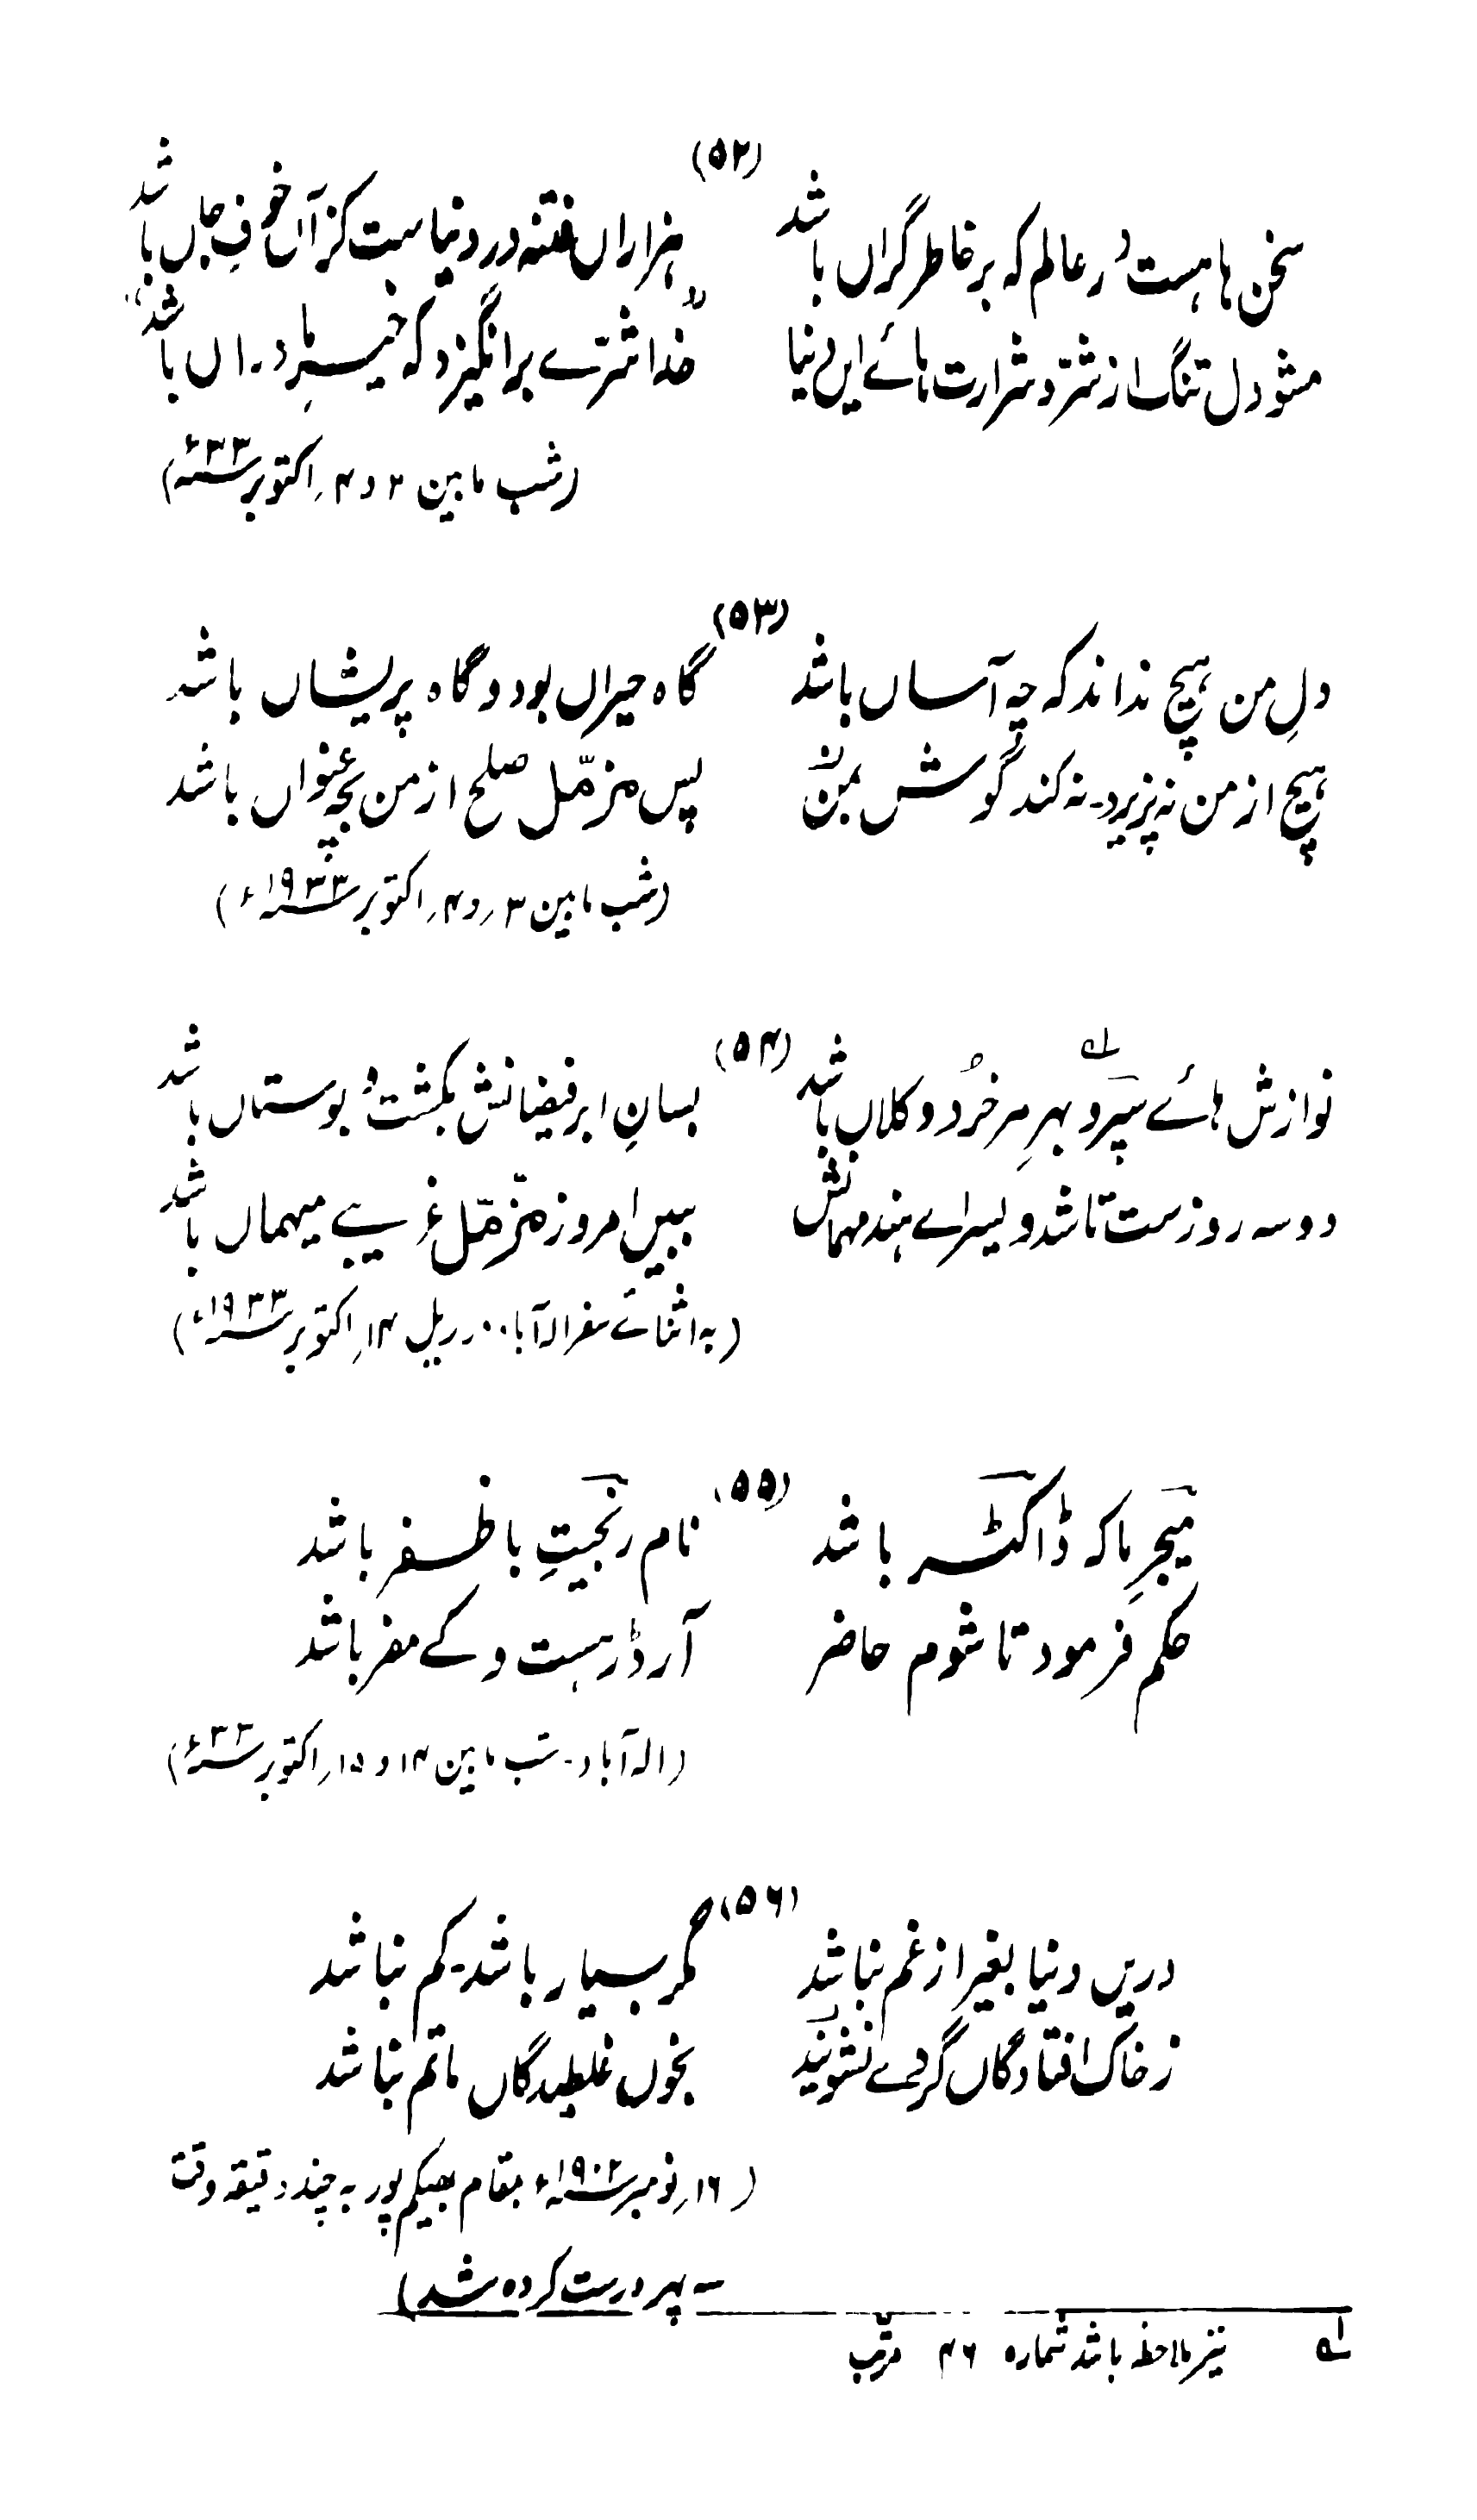 (۵۲)
سخن ہا ہست در عالم کہ بر خاطر گراں باشد ہزاراں فتنہ در دنیاست کز آں خوفِ جاں باشد
مشو دل تنگ از شر و شرارت ہائے ایں دنیا "خدا شرّے برانگیزد کہ خیرِ ما دراں باشد"
(شب مابین ۲ و ۳ ؍ اکتوبر ۳۳ء)
(۵۳)
دلِ من ہیچ نداند کہ چہ آساں باشد گاہ حیراں بود و گاہ پریشاں باشد
ہیچ از من نہ پذیرد نہ کند گوش سخن پس مزمّل صلح از من بچہ عنواں باشد
(شب مابین ۳ ؍ و ۴ ؍ اکتوبر ۱۹۳۳ء)
(۵۴)
نوازش ہائے سپرو بہرِ ہر خُرد و کلاں باشد بسانِ ابر فیضانش بکشت و بوستاں باشد
دو سہ روزست تا شد ویسراے ہند مہمانش ببیں امروز مزمّل غریبے میہماں باشد
(بہ اثنائے سفر الہ آباد۔ ریل ۱۴ ؍ اکتوبر ۱۹۳۳ء)
(۵۵)
میجرِ ما کہ ڈاکٹر باشد نام رنجیتِ با ظفر باشد
حکم فرمود تا شوم حاضر آرڈر ہست و کے مفر باشد
(الہ آباد۔ شب مابین ۱۴ و ۱۵ ؍ اکتوبر ۳۳ء)
(۵۶)
دریں دنیا بغیر از غم نباشد گر بسیار باشد۔ کم نباشد
ز خاک افتادگاں گردے نشوید بخوں غلطیدگاں ماتم نباشد
(۱۶ ؍ نومبر ۱۹۰۲ء بمقام بھیکم پور بہ چند دقیقہ وقت
سہ پہر درست کردہ شد)
لہ نیز ملاحظہ باشد شمارہ ۴۶ مرتب